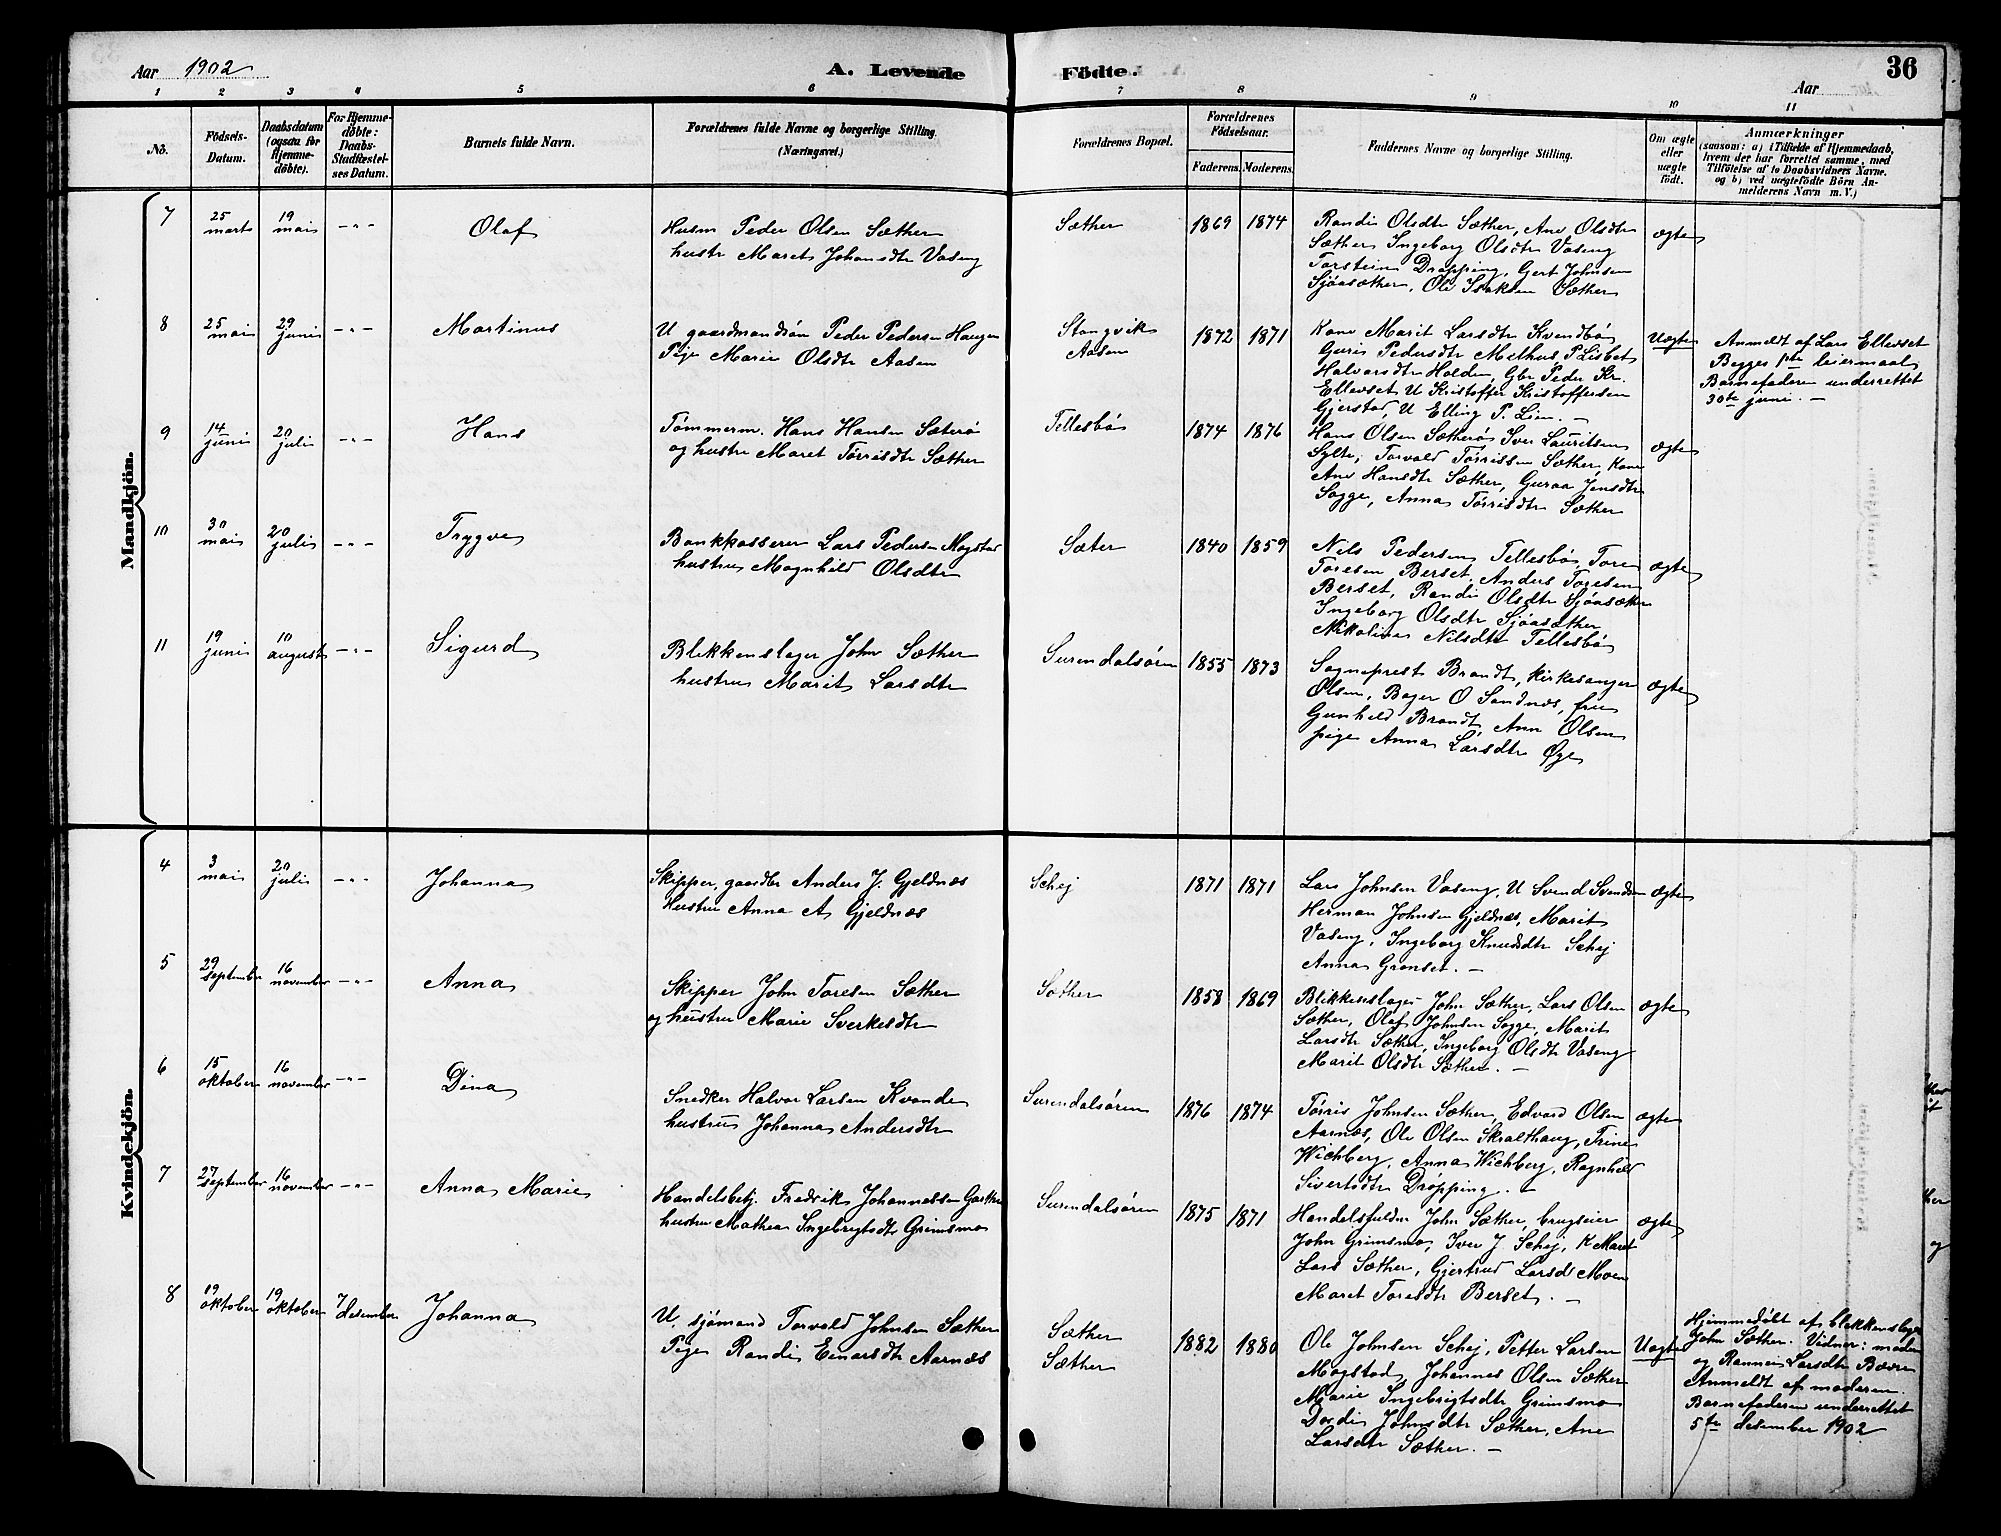 Aar 1902
A. Levende
Födte.
Aar
36
1 2 3 4 5 6 7 8 9 10 11
No.
Födsels-
Datum.
Daabsdatum
(ogsaa for
Hjemme-
døbte).
For Hjemme-
døbte:
Daabs-
Stadfæstel-
ses Datum.
Barnets fulde Navn.
Forældrenes fulde Navne og borgerlige Stilling.
(Næringsvei.)
Forældrenes Bopæl.
Forældrenes
Födselsaar.
Faderens. Moderens.
Faddernes Navne og borgerlige Stilling.
Om ægte
eller
uægte
födt.
Anmærkninger
(saasom: a) i Tilfælde af Hjemmedaab,
hvem der har forrettet samme, med
Tilföielse af to Daabsvidners Navne,
og b) ved uægtefödte Börn An-
melderens Navn m. V.)
Mandkjön.
7
25
marts
19
mai
-"-
Olaf
Husm Peder Olsen Sæther
hustr Maret Johansdtr Vaseng
Sæther
1869
1874
Randi Olsdtr Sæther, Ane Olsdtr
Sæther Ingeborg Olsdtr Vaseng
Torstein Dropping, Gert Johnsen
Sjöasæther, Ole Isaksen Sæther
ægte
8
25
mai
29
juni
-"-
Martinus
U gaardmandsön Peder Pedersen Haugen
Pige Marie Olsdtr Aasen
Stangvik
Aasen
1872
1871
Kone Marit Larsdtr Kvendbö
Guri Pedersdtr Melhus P Lisbet
Halvorsdtr Holden, Gbr Peder Kr.
Ellevset U Kristoffer Kristoffersen
Gjerstad, U Elling P. Lien. —
Uægte
Anmeldt af Lars Ellevset
Begges 1ste leiermaal
Barnefaderen underrettet
30te juni. —
9
14
juni
20
juli
-"-
Hans
Tömmerm. Hans Hansen Sæterö
og hustru Maret Törrisdtr Sæther
Tellesbö
1874
1876
Hans Olsen Sætherö Iver Lauritsen
Sylte, Torvald Törrissen Sæther, Kone
Ane Hansdtr Sæther, Guraa Jensdtr
Sogge, Anna Törrisdtr Sæther
ægte
10
30
mai
20
juli
-"-
Trygve
Bankkasserer Lars Pedersen Mogstad
hustru Magnhild Olsdtr
Sæter
1840
1859
Nils Pedersen Tellesbö, Tore
Toresen Berset, Anders Toresen
Berset, Randi Olsdtr Sjöasæther
Ingeborg Olsdtr Sjöasæther
Nikoline Nilsdtr Tellesbö
ægte
11
19
juni
10
august
-"-
Sigurd
Blikkenslager John Sæther
hustru Marit Larsdtr
Surendalsören
1855
1873
Sogneprest Brandt, Kirkesanger
Olsen, Bager O Sandnes, fru
Gunhild Brandt, Ane Olsen
pige Anna Larsdtr Øye
ægte
Kvindekjön.
4
3
mai
20
juli
-"-
Johanna
Skipper, gaardbr Anders J. Gjeldnæs
Hustru Anna A Gjeldnæs
Schej
1871
1871
Lars Johnsen Vaseng, U Svend Svendsen
Herman Johnsen Gjeldnæs, Marit
Vaseng, Ingeborg Knudsdtr Schej
Anna Grønset. —
ægte
5
29
september
16
november
-"-
Anna
Skipper John Toresen Sæther
og hustru Marie Sverkesdtr
Sæther
1858
1869
Blikkenslager John Sæther, Lars Olsen
Sæther, Olaf Johnsen Sogge, Marit
Larsdtr Sæther, Ingeborg Olsdtr Vaseng
Marit Olsdtr Sæther. —
ægte
6
15
oktober
16
november
-"-
Dina
Snedker Halvor Larsen Kvande
hustru Johanna Andersdtr
Surendalsören
1876
1874
Törris Johnsen Sæther, Edvard Olsen
Aarnæs, Ole Olsen Skralthaug, Trine
Wichberg, Anna Wichberg, Ragnhild
Sivertsdtr Dröpping. —
ægte
7
27
september
16
november
-"-
Anna Marie
Handelsbetj. Fredrik Johannessen
hustru Mathea Ingebrigtsdtr Grimsmo
Surendalsören
1875
1871
Handelsfuldm John Sæther, brugseier
John Grimsmo, Iver J. Schej, K Maret
Lars Sæther, Gjertrud Larsd Moen
Maret Toresdtr Berset. —
ægte
8
19
oktober
19
oktober
7
desember
Johanna
U. sjömand Torvald Johnsen Sæther
Pige Randi Einarsdtr Aarnæs
Sæther
Sæther
1882
1880
Ole Johnsen Schej, Petter Larsen
Mogstad, Johannes Olsen Sæther
Marie Ingebrigtsdtr Grimsmo
Dordi Johnsdtr Sæther, Ane
Larsdtr Sæther. —
Uægte
Hjemmedöbt af blekkenslager
John Sæther. Vidner: moderen
og Rannei Larsdtr Bæver
Anmeldt af moderen.
Barnefaderen underrettet
5te desember 1902